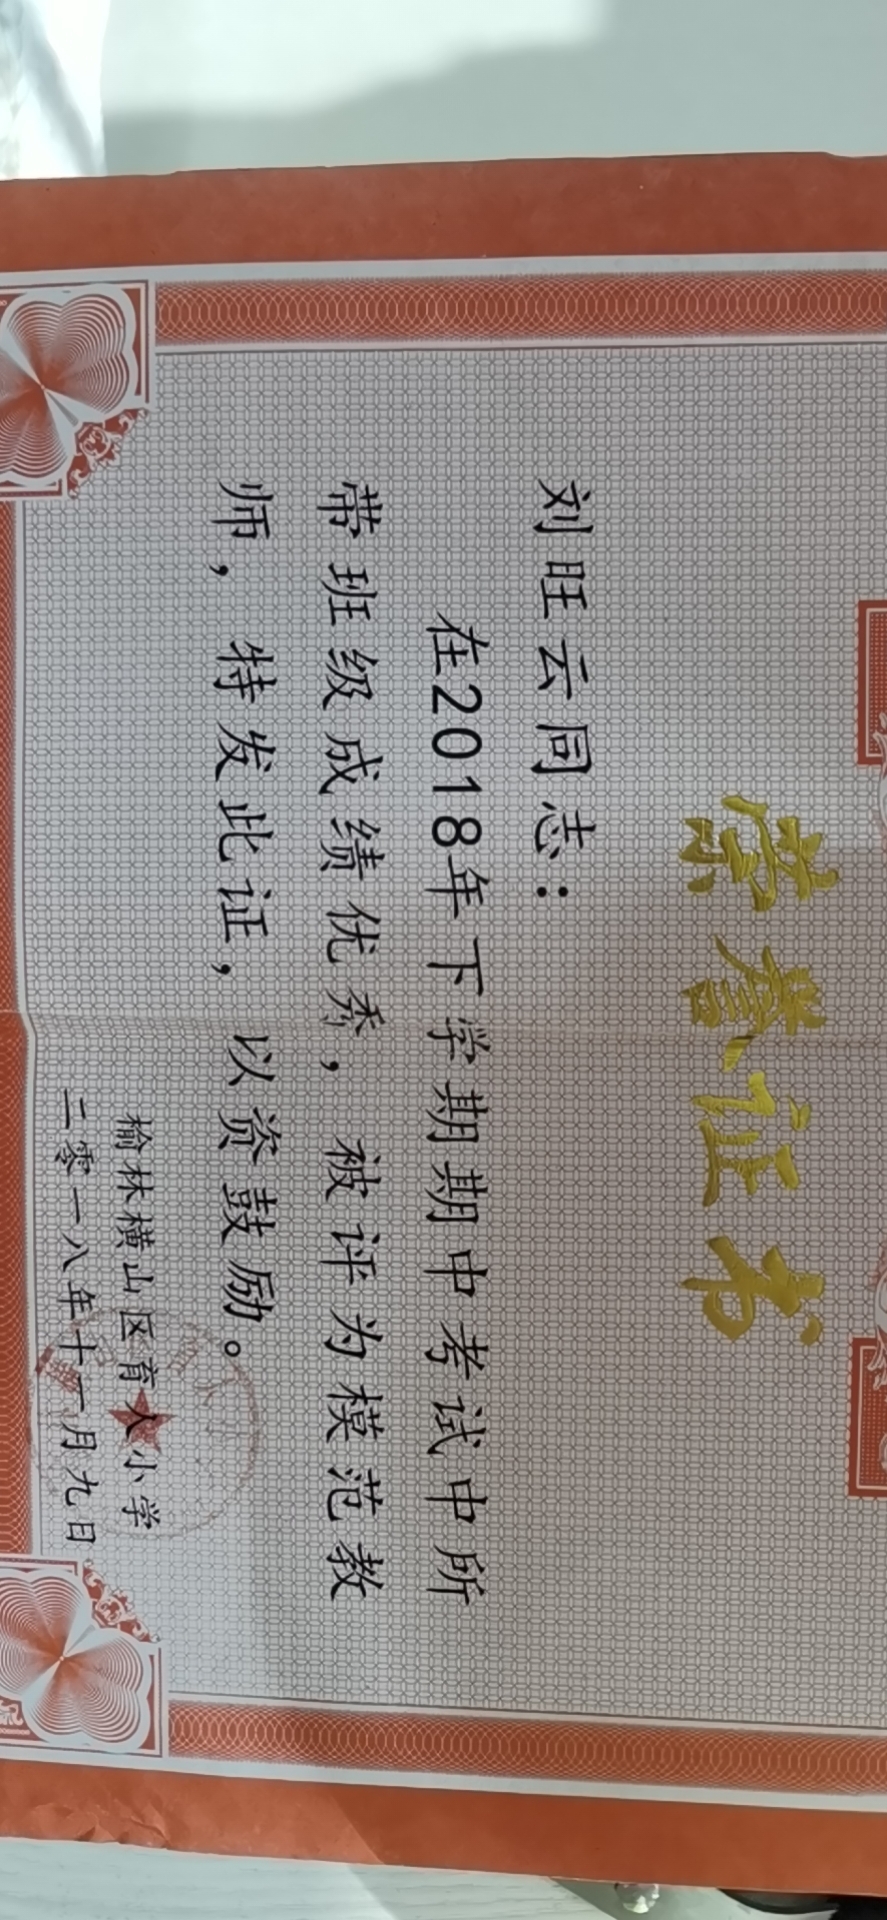 荣誉证书
刘旺云同志：
在2018年下学期期中考试中所
带班级成绩优秀，被评为模范教
师，特发此证，以资鼓励。
榆林横山区育人小学
二零一八年十一月九日